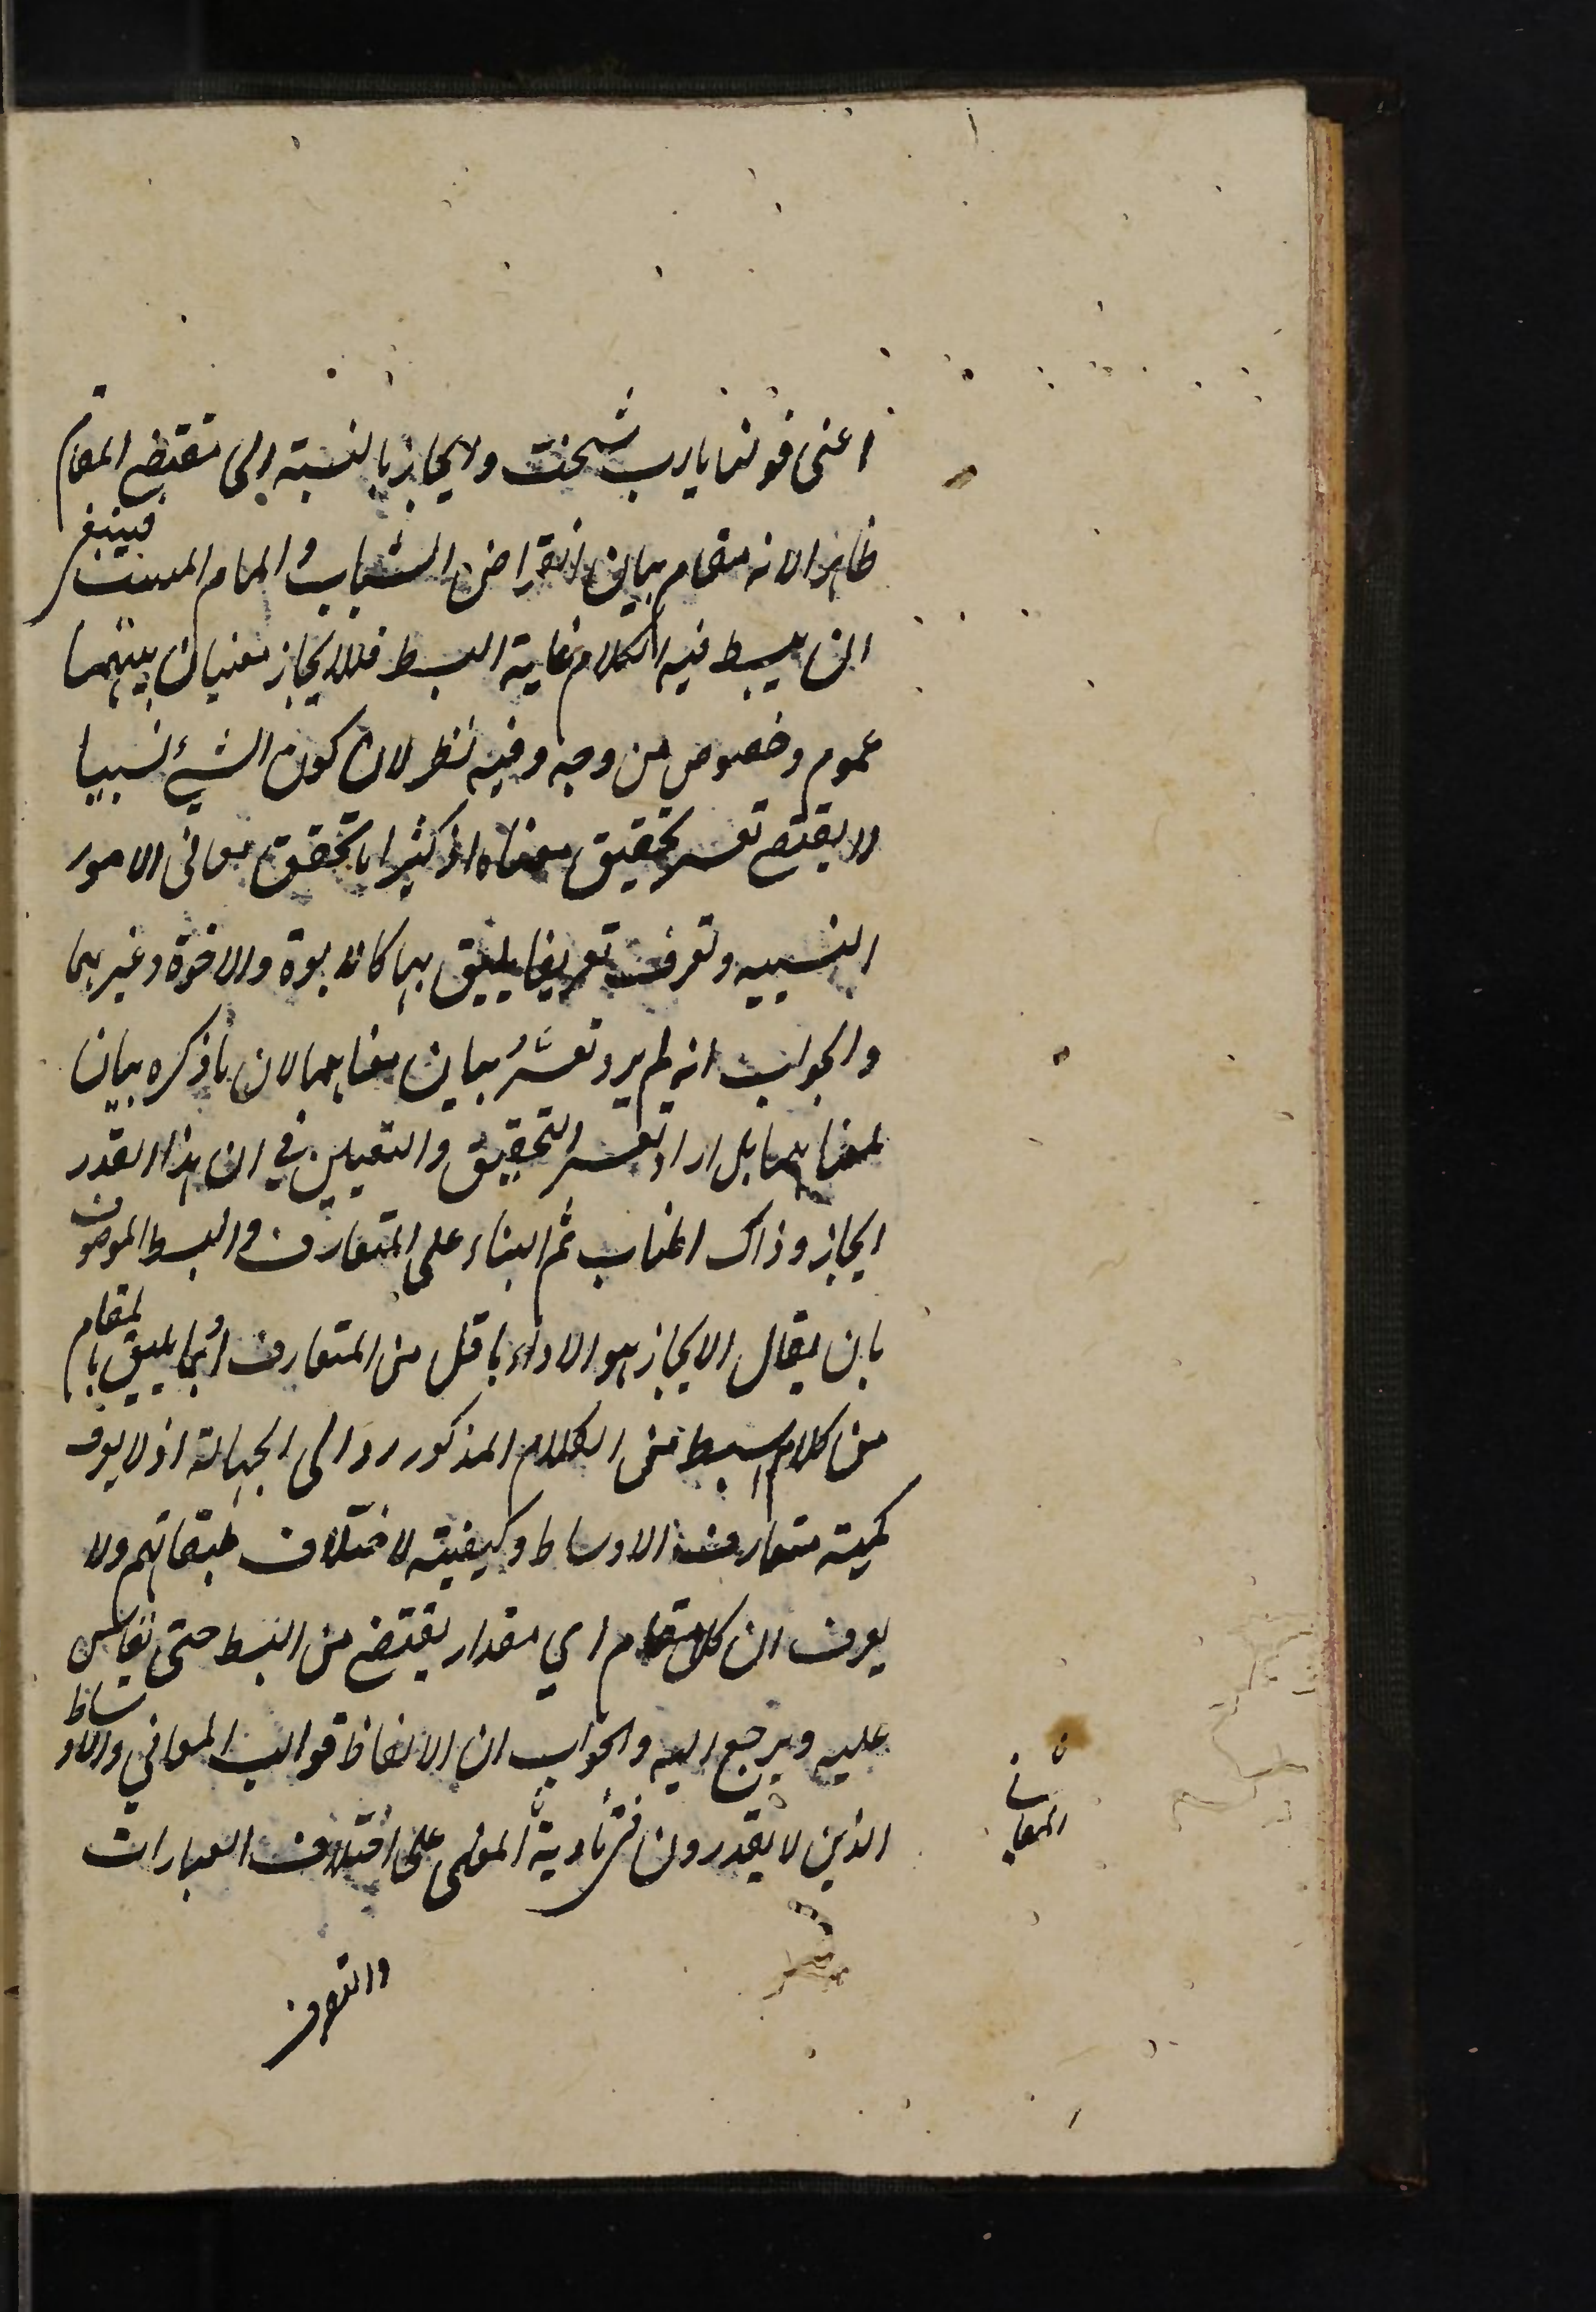 اعنى قولنا يا رب شخت وايجاز بالنسبة الى مقتضى المقام
ظاهرا لانه مقام بيان انقراض الشباب والمام المشيب فينبغى
ان يبسط فيه الكلام غاية البسط فللايجاز معنيان بينهما
عموم وخصوص من وجه وفيه نظر لان كون الشئ نسبيا
لا يقتضى تعسر تحقيق معناه اذ كثيرا ما تحقق معانى الامور
النسبيه وتعرف تعريفا يليق بها كالابوة والاخوة وغيرهما
والجواب انه لم يرد تعسر بيان معناهما لان ما ذكره بيان
لمعناهما بل اراد تعسر التحقيق والتعيين في ان هذا القدر
ايجاز وذاك اطناب ثم البناء على المتعارف والبسط الموصوف
بان يقال الايجاز هو الاداء باقل من المتعارف او بما يليق بالمقام
من كلام ابسط من الكلام المذكور رد الى الجهالة اذ لا يعرف
كمية متعارف الاوساط وكيفيته لاختلاف طبقاتهم ولا
يعرف ان كل مقام اي مقدار يقتضى من البسط حتى يقاس
عليه ويرجع اليه والجواب ان الالفاظ قوالب المعاني والاوساط
الذين لا يقدرون في تأدية المعنى على اختلاف العبارات
المعانى
والتصرف